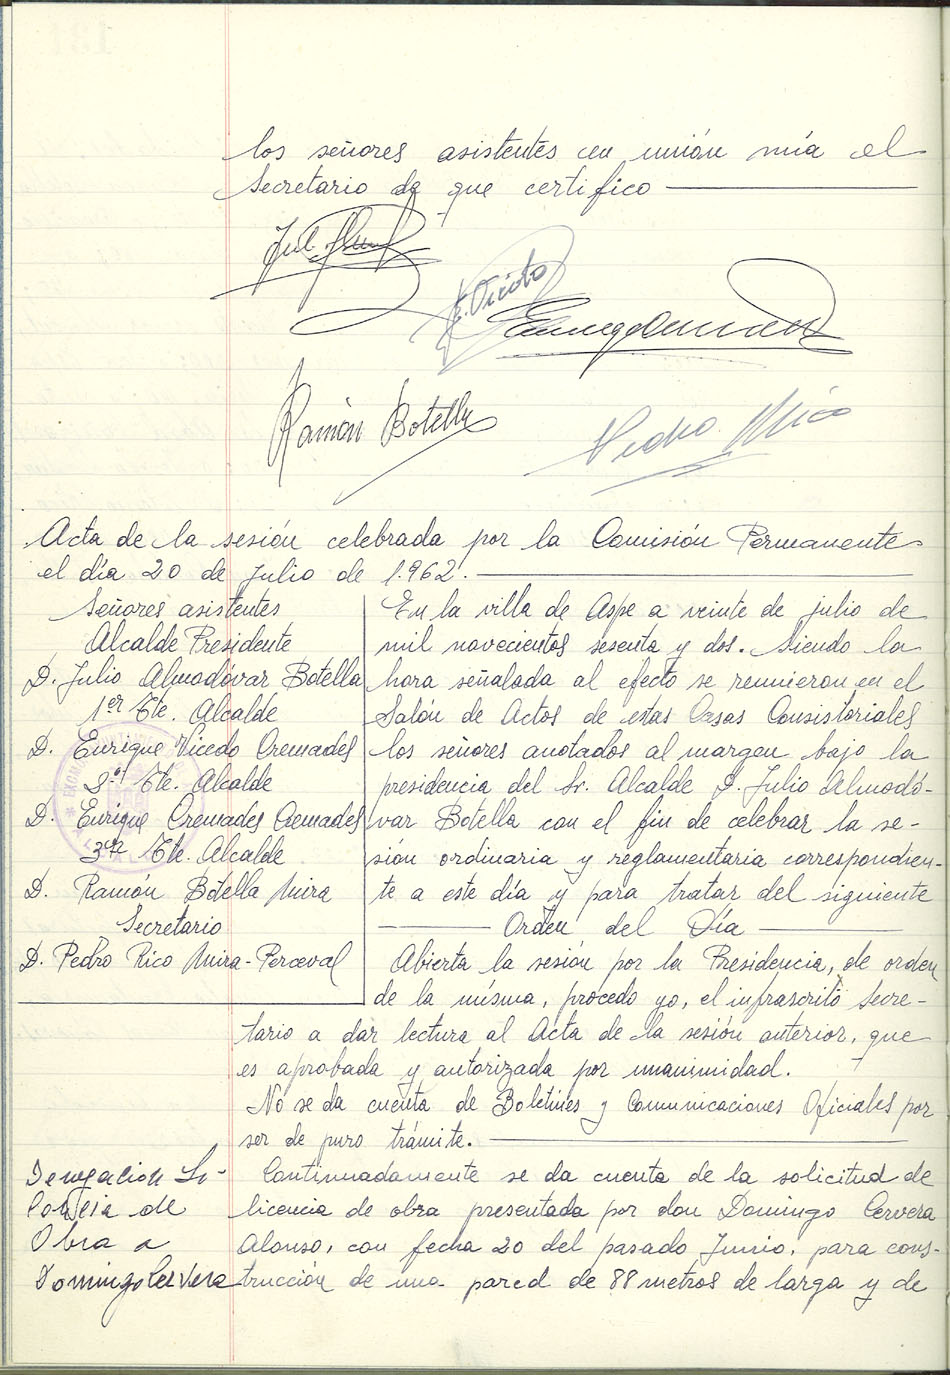 los señores asistentes en unión mía el
Secretario de que certifico
E. Vicedo
Ramón Botella
Pedro Rico
Acta de la sesión celebrada por la Comisión Permanente
el día 20 de Julio de 1.962.
Señores asistentes
Alcalde Presidente
D. Julio Almodóvar Botella
1er Tte. Alcalde
D. Enrique Vicedo Cremades
2º Tte. Alcalde
D. Enrique Cremades Cremades
3er Tte. Alcalde
D. Ramón Botella Mira
Secretario
D. Pedro Rico Mira-Perceval
En la villa de Aspe a veinte de julio de
mil novecientos sesenta y dos. Siendo la
hora señalada al efecto se reunieron en el
Salón de Actos de estas Casas Consistoriales
los señores anotados al margen bajo la
presidencia del Sr. Alcalde D. Julio Almodó-
var Botella con el fin de celebrar la se-
sión ordinaria y reglamentaria correspondien-
te a este día y para tratar del siguiente
Orden del Día
Abierta la sesión por la Presidencia, de orden
de la misma, procedo yo, el infrascrito Secre-
tario a dar lectura al Acta de la sesión anterior, que
es aprobada y autorizada por unanimidad.
No se da cuenta de Boletines y Comunicaciones Oficiales por
ser de puro trámite.
Denegacion Li-
cencia de
Obra a
Domingo Cervera
Continuadamente se da cuenta de la solicitud de
licencia de obra presentada por don Domingo Cervera
Alonso, con fecha 20 del pasado Junio, para cons-
trucción de una pared de 88 metros de larga y de